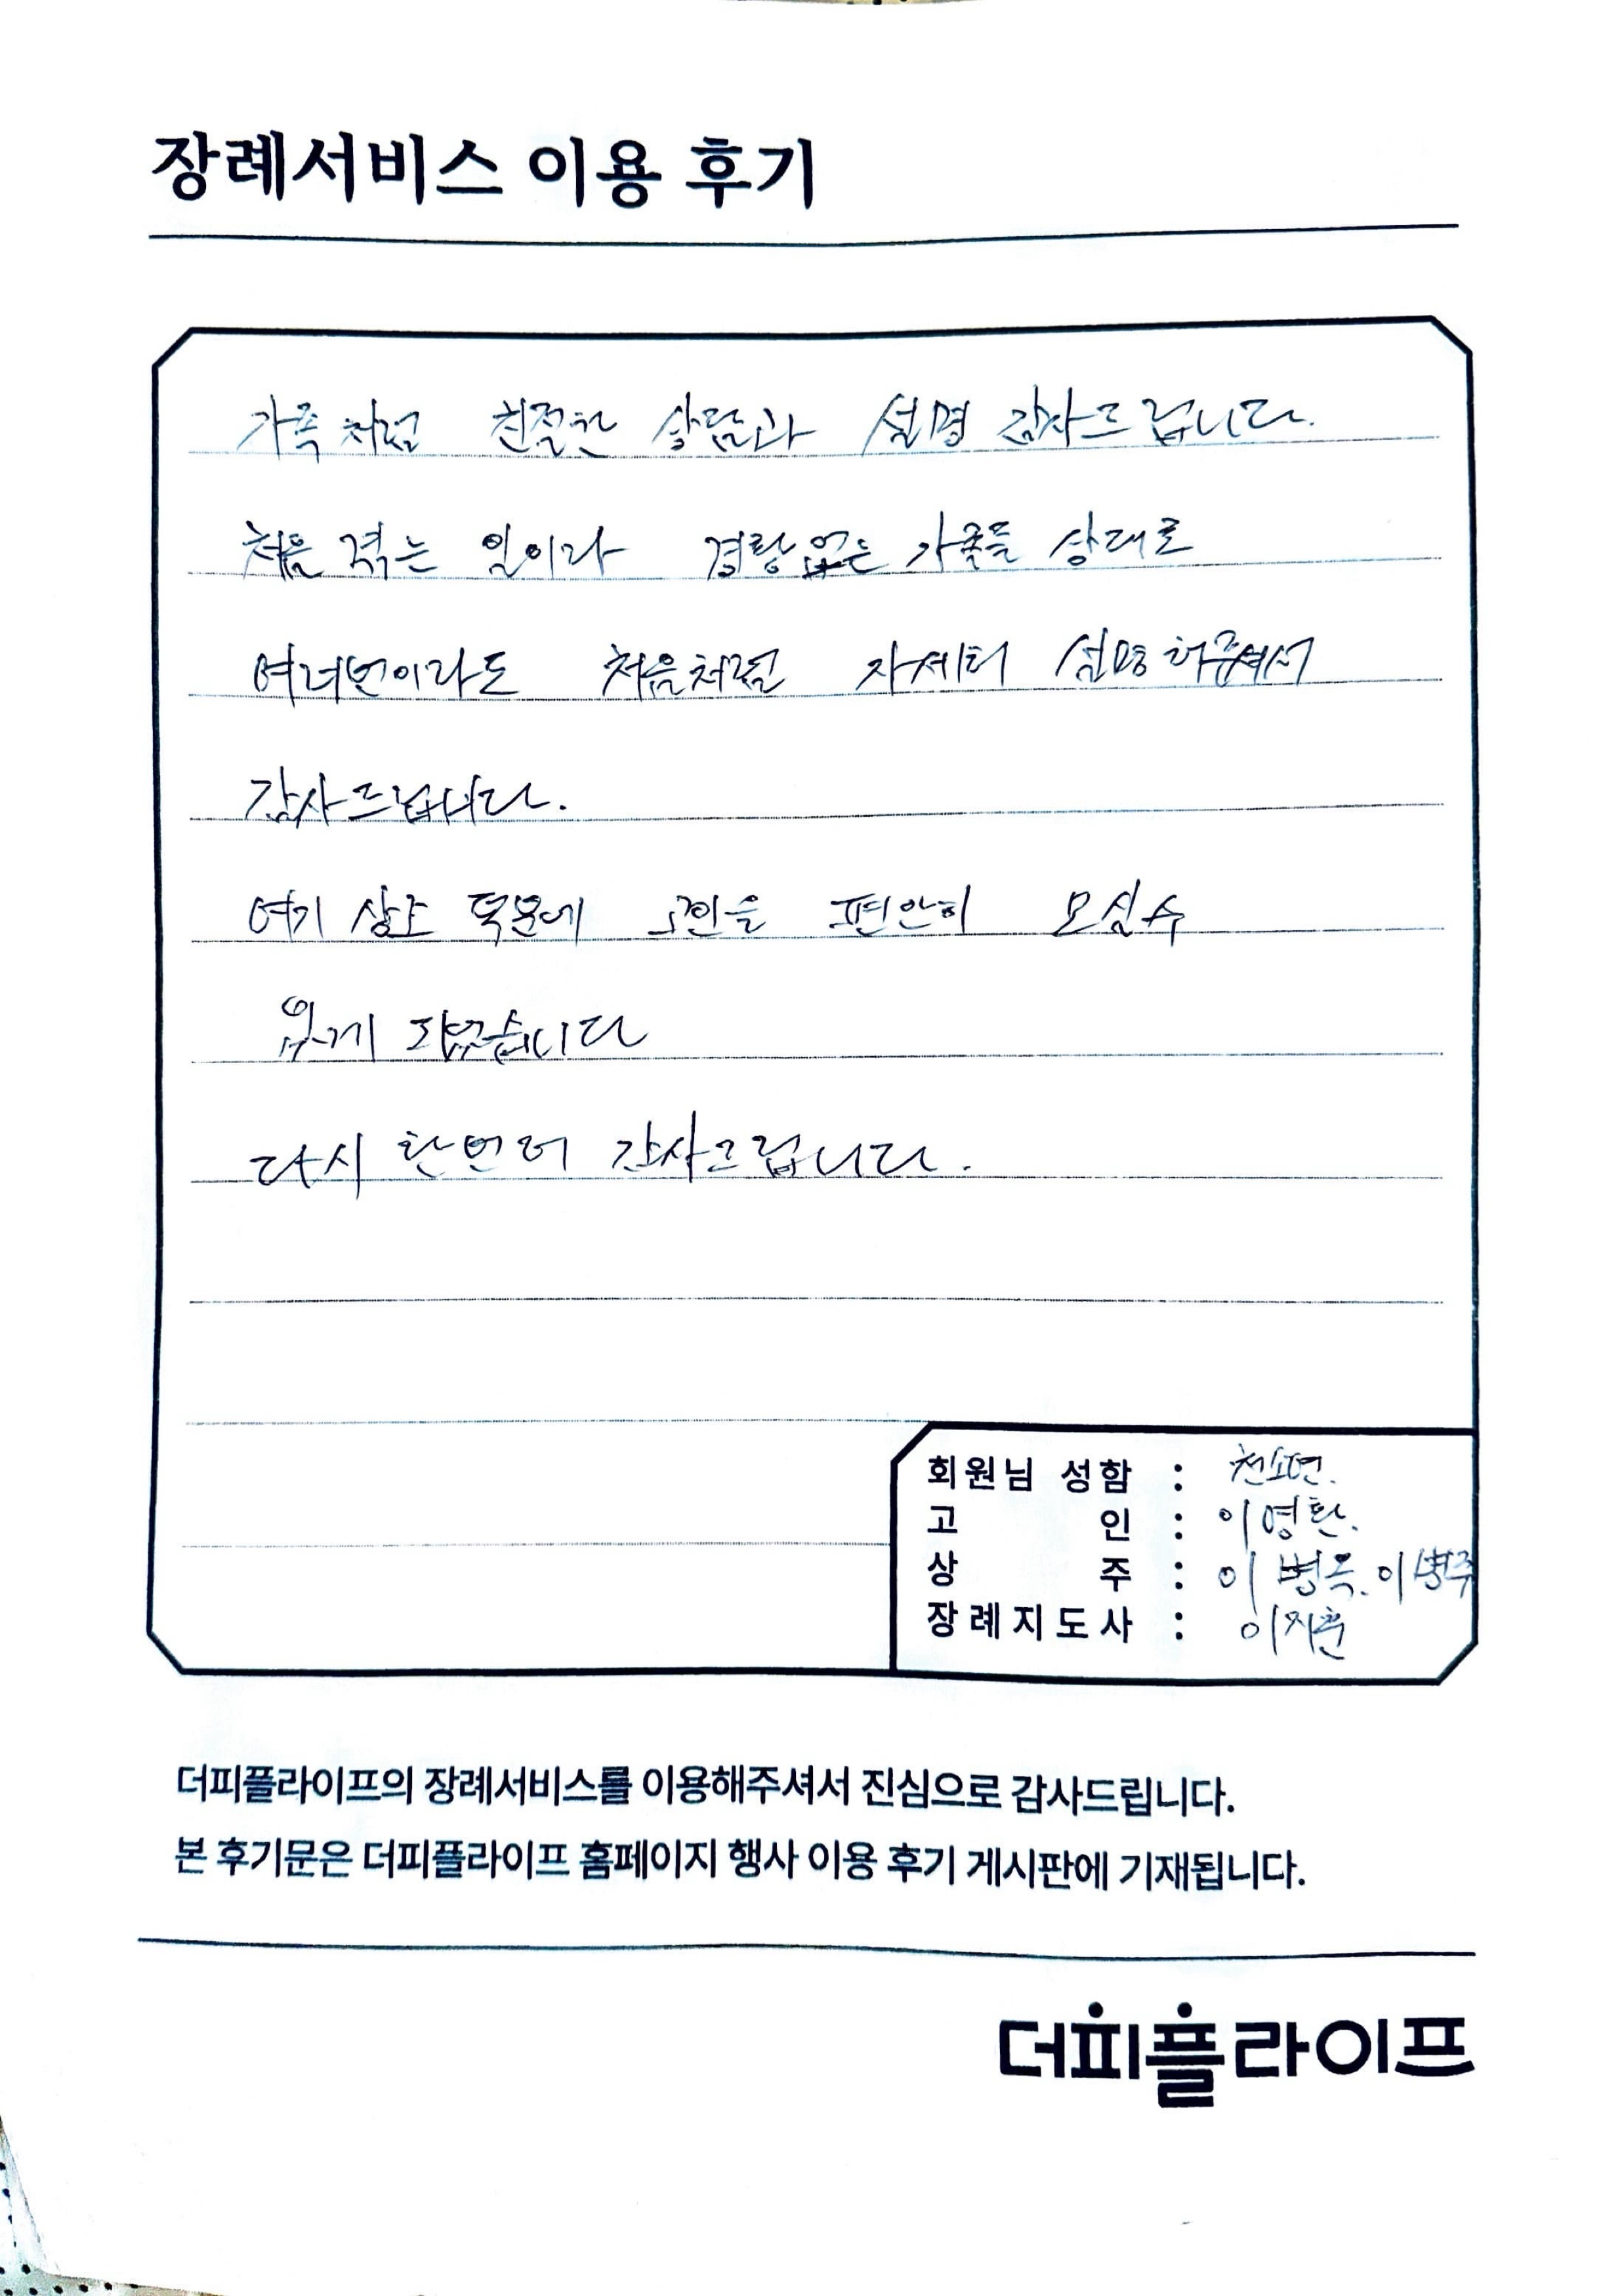 장례서비스 이용 후기
가족처럼 친절한 상담과 설명 감사드립니다.
처음 겪는 일이라 경황없는 가족들 상대로
여러번이라도 처음처럼 자세히 설명해주셔서
감사드립니다.
여기 상조 덕분에 고인을 편안히 모실수
있게 되었습니다
다시 한번더 감사드립니다.
회원님 성함 : 천소연.
고 인 : 이영환.
상 주 : 이병욱. 이병주
장례지도사 : 이지훈
더피플라이프의 장례서비스를 이용해주셔서 진심으로 감사드립니다.
본 후기문은 더피플라이프 홈페이지 행사 이용 후기 게시판에 기재됩니다.
더피플라이프